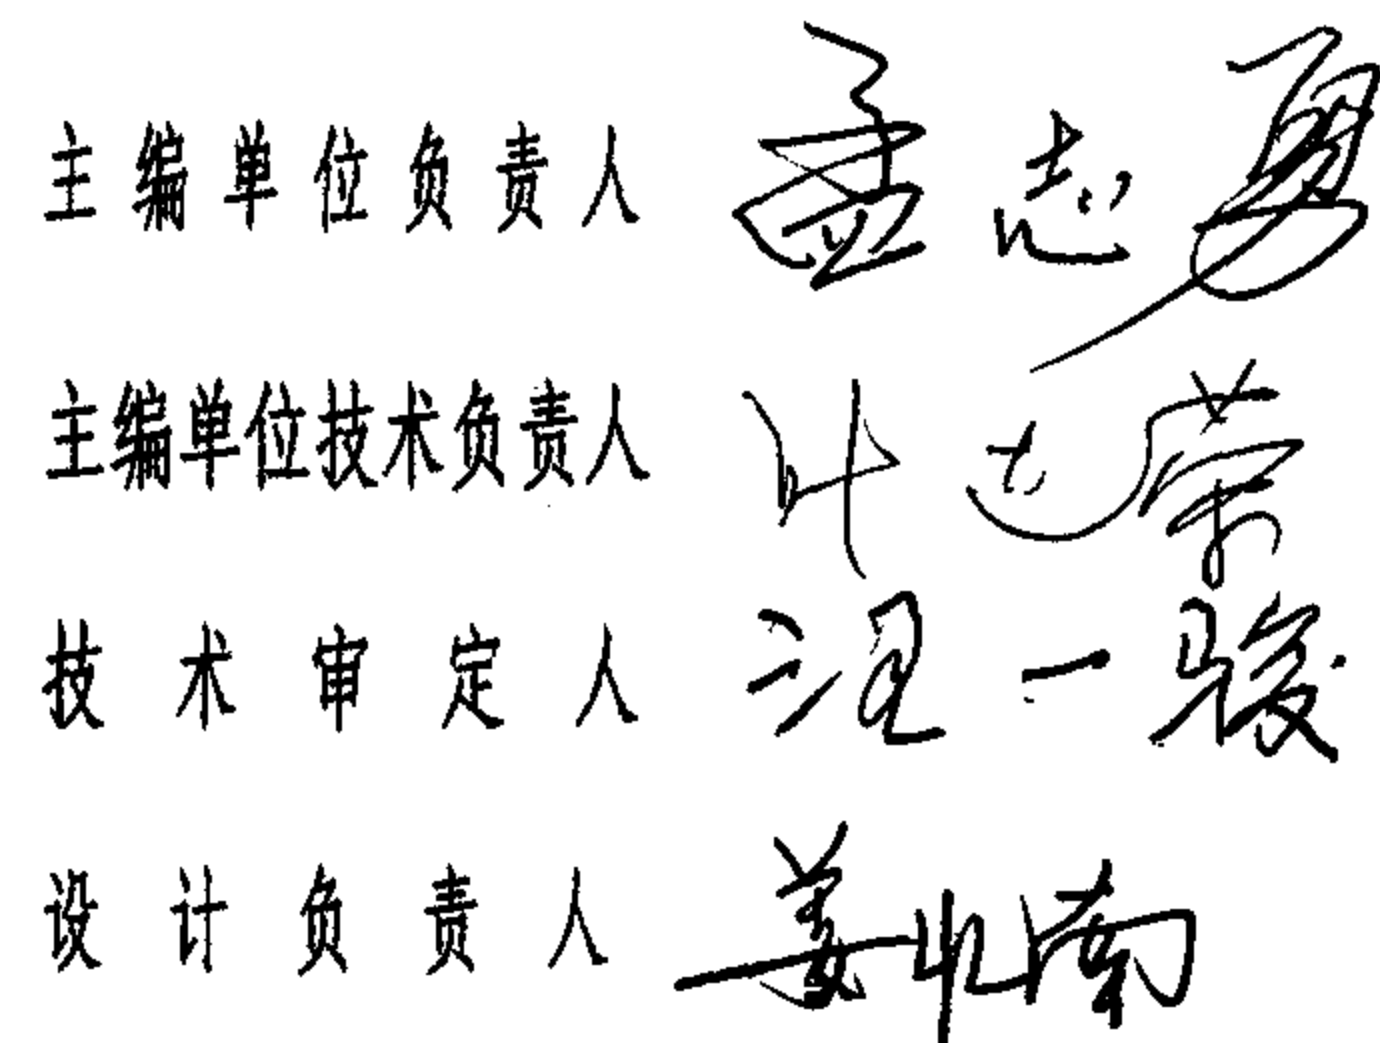 主编单位负责人 孟志勇
主编单位技术负责人 叶达荣
技术审定人 汪一骏
设计负责人 姜忻南